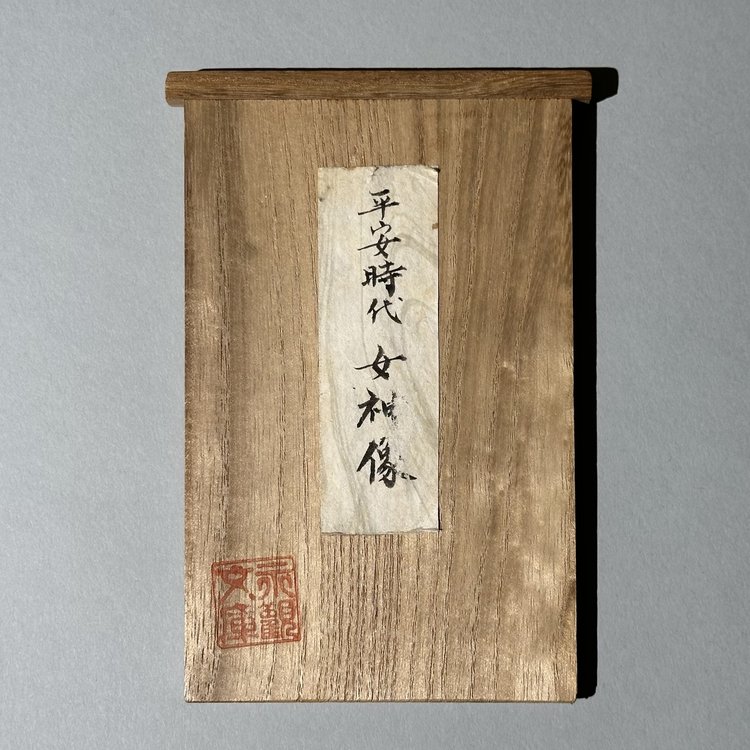 平安時代 女神像
永觀
文庫